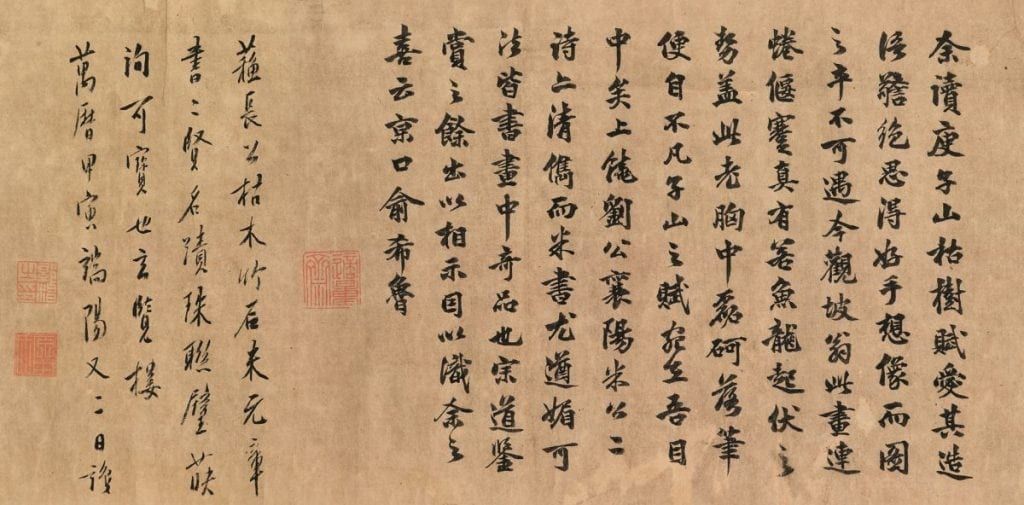 余讀庾子山枯樹賦愛其造
語警絶思得好手想像而圖
之卒不可遇今觀坡翁此畫連
蜷偃蹇真有若魚龍起伏之
勢蓋此老胸中磊砢落筆
便自不凡子山之賦宛在吾目
中矣上饒劉公襄陽米公二
詩亦清儁而米書尤遒媚可
法皆書畫中奇品也宗道鑒
賞之餘出以相示因以識余之
喜云京口俞希魯
蘇長公枯木竹石米元章
書二賢名蹟珠聯璧映
洵可寶也玄覽樓
萬曆甲寅端陽又二日識